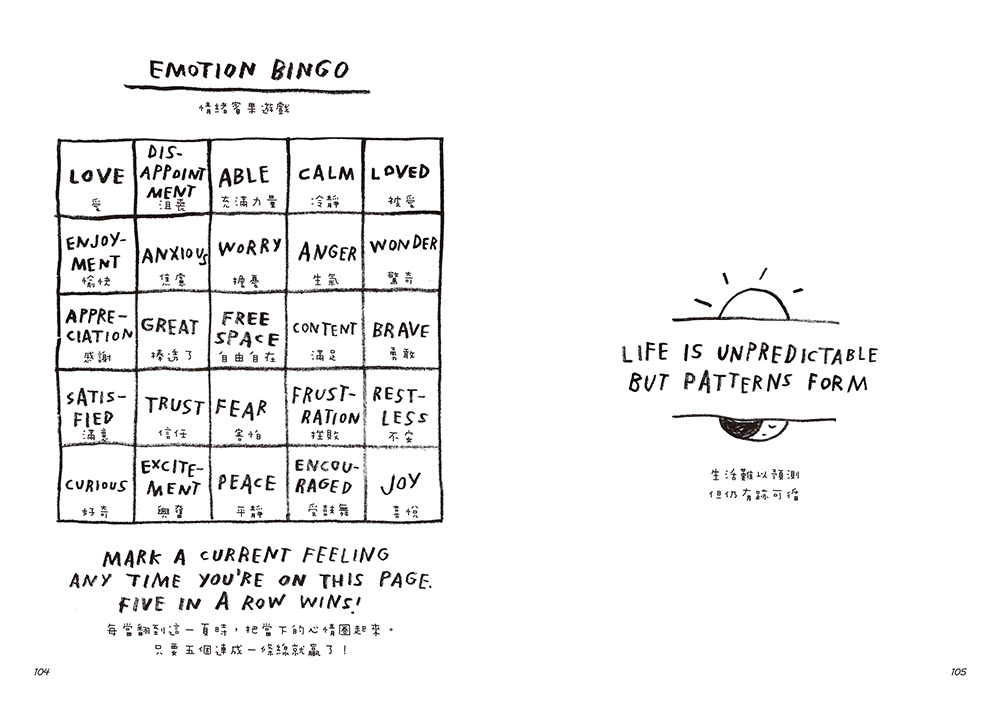 EMOTION BINGO
情緒賓果遊戲
LOVE
愛
DIS-
APPOINT
MENT
沮喪
ABLE
充滿力量
CALM
冷靜
LOVED
被愛
ENJOY-
MENT
愉快
ANXIOUS
焦慮
WORRY
擔憂
ANGER
生氣
WONDER
驚奇
APPRE-
CIATION
感謝
GREAT
棒透了
FREE
SPACE
自由自在
CONTENT
滿足
BRAVE
勇敢
SATIS-
FIED
滿意
TRUST
信任
FEAR
害怕
FRUST-
RATION
挫敗
REST-
LESS
不安
CURIOUS
好奇
EXCITE-
MENT
興奮
PEACE
平靜
ENCOU-
RAGED
受鼓舞
JOY
喜悅
MARK A CURRENT FEELING
ANY TIME YOU'RE ON THIS PAGE.
FIVE IN A ROW WINS!
每當翻到這一頁時，把當下的心情圈起來。
只要五個連成一條線就贏了！
104
LIFE IS UNPREDICTABLE
BUT PATTERNS FORM
生活難以預測
但仍有跡可循
105